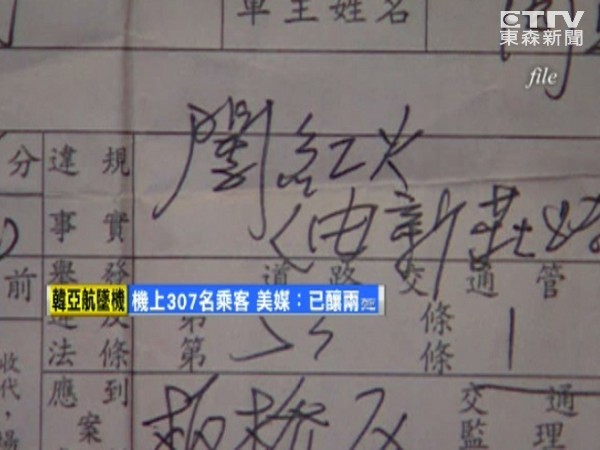 車主姓名
ETTV
東森新聞
file
闖紅
由新莊
違規
事實
分
前
道路交通管
韓亞航墜機 機上307名乘客 美媒：已釀兩死
第 53 條 1
第 條
法條
應到
案
收代，場
板橋
交通
監理